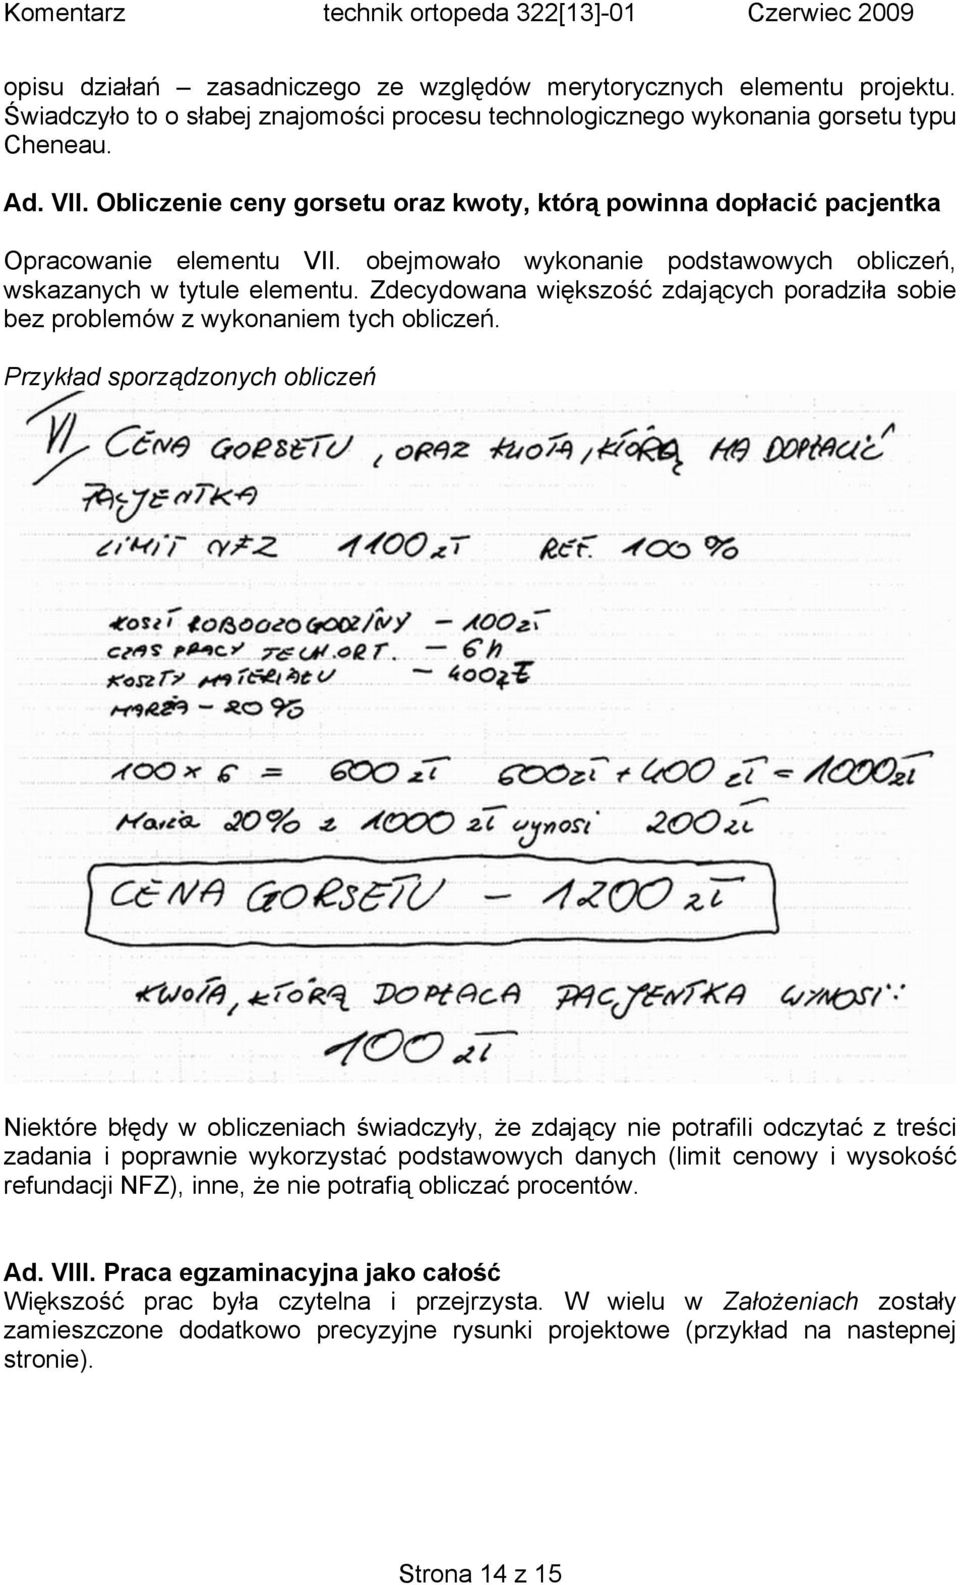 Komentarz technik ortopeda 322[13]-01 Czerwiec 2009
opisu działań – zasadniczego ze względów merytorycznych elementu projektu.
Świadczyło to o słabej znajomości procesu technologicznego wykonania gorsetu typu
Cheneau.
Ad. VII. Obliczenie ceny gorsetu oraz kwoty, którą powinna dopłacić pacjentka
Opracowanie elementu VII. obejmowało wykonanie podstawowych obliczeń,
wskazanych w tytule elementu. Zdecydowana większość zdających poradziła sobie
bez problemów z wykonaniem tych obliczeń.
Przykład sporządzonych obliczeń
VI/ CENA GORSETU, ORAZ KWOTA, KTÓRĄ MA DOPŁACIĆ
PACJENTKA
LIMIT NFZ 1100 zł REF. 100 %
KOSZT ROBOCZOGODZINY – 100 zł
CZAS PRACY TECH. ORT. – 6 h
KOSZTY MATERIAŁU – 400 zł
MARŻA – 20 %
100 x 6 = 600 zł 600 zł + 400 zł = 1000 zł
Marża 20% z 1000 zł wynosi 200 zł
CENA GORSETU – 1200 zł
KWOTA, KTÓRĄ DOPŁACA PACJENTKA WYNOSI:
100 zł
Niektóre błędy w obliczeniach świadczyły, że zdający nie potrafili odczytać z treści
zadania i poprawnie wykorzystać podstawowych danych (limit cenowy i wysokość
refundacji NFZ), inne, że nie potrafią obliczać procentów.
Ad. VIII. Praca egzaminacyjna jako całość
Większość prac była czytelna i przejrzysta. W wielu w Założeniach zostały
zamieszczone dodatkowo precyzyjne rysunki projektowe (przykład na nastepnej
stronie).
Strona 14 z 15